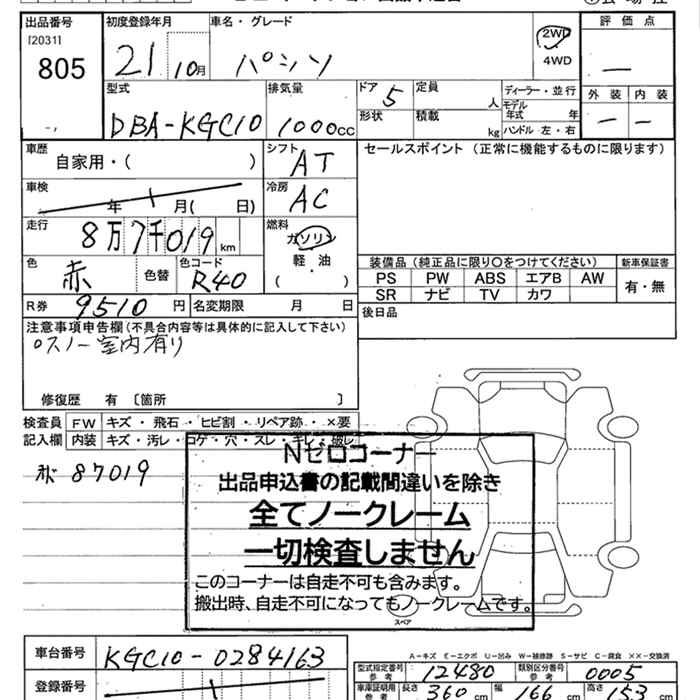 出品番号 初度登録年月 車名・グレード 評価点
[2031] 21 10月 パッソ 2WD
805 4WD —
型式 排気量 ドア 5 定員 人 ディーラー・並行 外装 内装
DBA-KGC10 1000cc 形状 積載 kg モデル年式 年 — —
ハンドル 左・右
車歴 自家用・( ) シフト AT セールスポイント (正常に機能するものに限ります)
車検 年 月( 日) 冷房 AC
走行 8万7千019km 燃料 ガソリン
色 赤 色替 色コード R40 軽・油 ( )
装備品(純正品に限り○をつけてください) 新車保証書
PS PW ABS エアB AW 有・無
SR ナビ TV カワ
R券 9510円 名変期限 月 日 後日品
注意事項申告欄(不具合内容等は具体的に記入して下さい)
室内有り
修復歴 有 〔箇所 〕
検査員 FW キズ・飛石・ヒビ割・リペア跡・×要
記入欄 内装 キズ・汚レ・コゲ・穴・スレ・キレ・破レ
87019
Nゼロコーナー
出品申込書の記載間違いを除き
全てノークレーム
一切検査しません
このコーナーは自走不可も含みます。
搬出時、自走不可になってもノークレームです。
スペア
A-キズ E-エクボ U-凹み W-補修跡 S-サビ C-腐食 XX-交換済
車台番号 KGC10-0284163
型式指定番号 参考 12480 類別区分番号 参考 0005
登録番号
車庫証明用 参考 長さ 360cm 幅 166cm 高さ 153cm